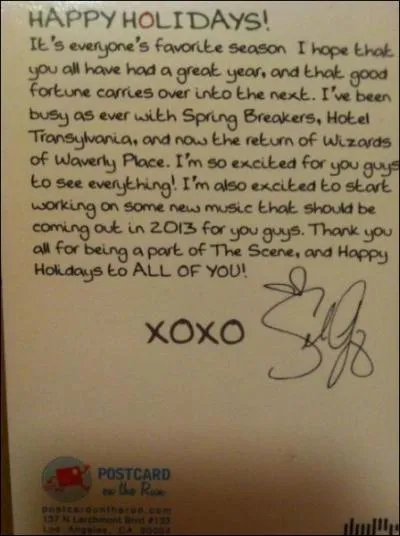 HAPPY HOLIDAYS!
It's everyone's favorite season I hope that
you all have had a great year, and that good
fortune carries over into the next. I've been
busy as ever with Spring Breakers, Hotel
Transylvania, and now the return of Wizards
of Waverly Place. I'm so excited for you guys
to see everything! I'm also excited to start
working on some new music that should be
coming out in 2013 for you guys. Thank you
all for being a part of The Scene, and Happy
Holidays to ALL OF YOU!
XOXO
POSTCARD
on the Run
postcardontherun.com
137 N Larchmont Blvd #133
Los Angeles, CA